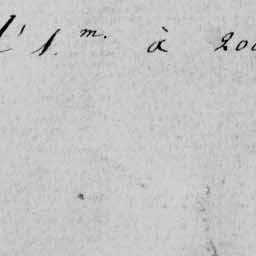 1.m. à 200